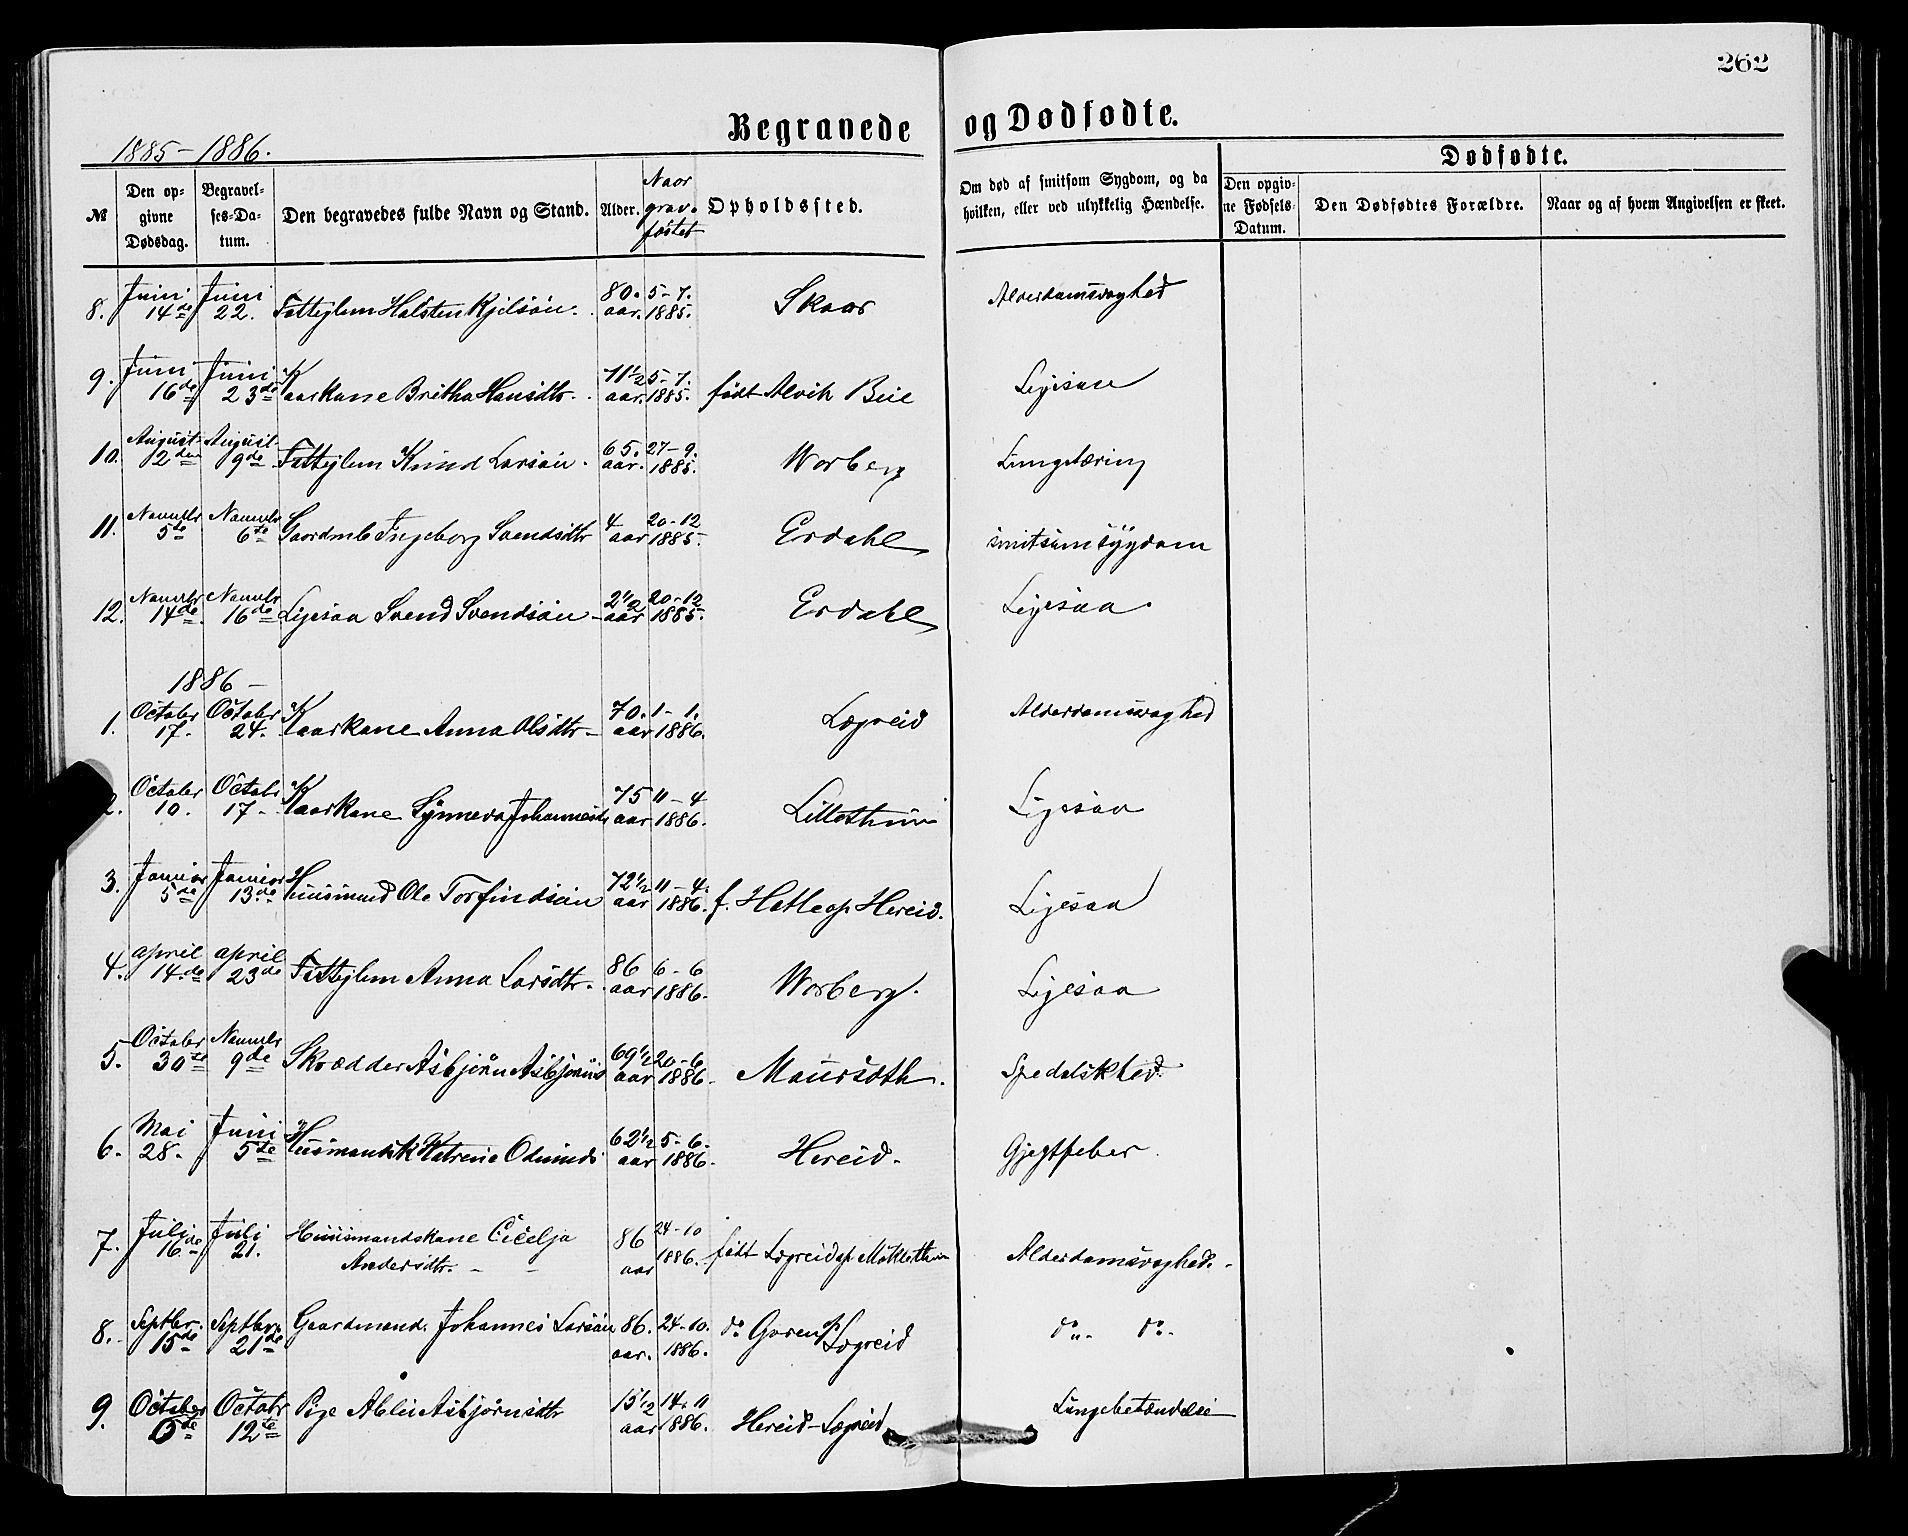 262
Begravede og Dødfødte.
1885 – 1886.
Dødfødte.
№ Den opgivne Dødsdag. Begravelses-Datum. Den begravedes fulde Navn og Stand. Alder. Naar gravfæstet Opholdssted. Om død af smitsom Sygdom, og da hvilken, eller ved ulykkelig Hændelse. Den opgivne Fødsels-Datum. Den Dødfødtes Forældre. Naar og af hvem Angivelsen er skeet.
8. Juni 14de Juni 22. Fattiglem Halsten Kjelsøn. 80. aar. 5-7. 1885. Skaar Alderdomsvaghed
9. Juni 16de Juni 23de Kaarkone Britha Hansdtr. 71½ aar. 5-7. 1885. født Alvik Bue Ligesaa
10. August 2den August 9de Fattiglem Knud Larsøn. 65. aar. 27-9. 1885. Worberg Lungetæring
11. Novmbr 5te Novmbr 6te Gaardmb Ingeborg Svendsdtr 4 aar 20-12 1885. Erdahl smitsumsygdom
12. Novmbr 14de Novmbr 16de Ligesaa Svend Svendsøn 2½ aar 20-12 1885. Erdahl Ligesaa
1886 –
1. Octobr 17. Octobr 24. Kaarkone Anna Olsdtr 70. aar 1-1. 1886. Lægreid Alderdomsvaghed
2. Octobr 10. Octobr 17. Kaarkone Synneva Johannesdt 75 aar 11-4 1886. Lilletthun Ligesaa
3. Januar 5de Januar 13de Husmand Ole Torfindsøn 72½ aar 11-4. 1886. f. Hatle op. Hereid. Ligesaa
4. april 14de april 23de Fattiglem Anna Larsdtr. 86 aar 6-6 1886. Worberg. Ligesaa
5. October 30te Novmbr 9de Skrædder Asbjørn Asbjørns 69½ aar 20-6 1886. Maursæth. Spedalskhed.
6. Mai 28. Juni 5te Husmandsk Katrene Odmunds 62½ aar 5-6. 1886. Hereid. Gjegtfeber
7. Juli 16de Juli 21. Huusmandskone Cicelja Andersdtr. 86 aar 24-10 1886. født Lægreid op. Møklethun Alderdomsvaghed.
8. Septbr. 15de Septbr. 21de Gaardmand. Johannes Larsøn 86. aar. 24-10. 1886. do Garen op. Lægreid do do
9. October 6te Octobr 12te Pige Ablu Asbjørnsdtr 15½ aar 14-11 1886. Hereid-Lægreid Lungebetændelse